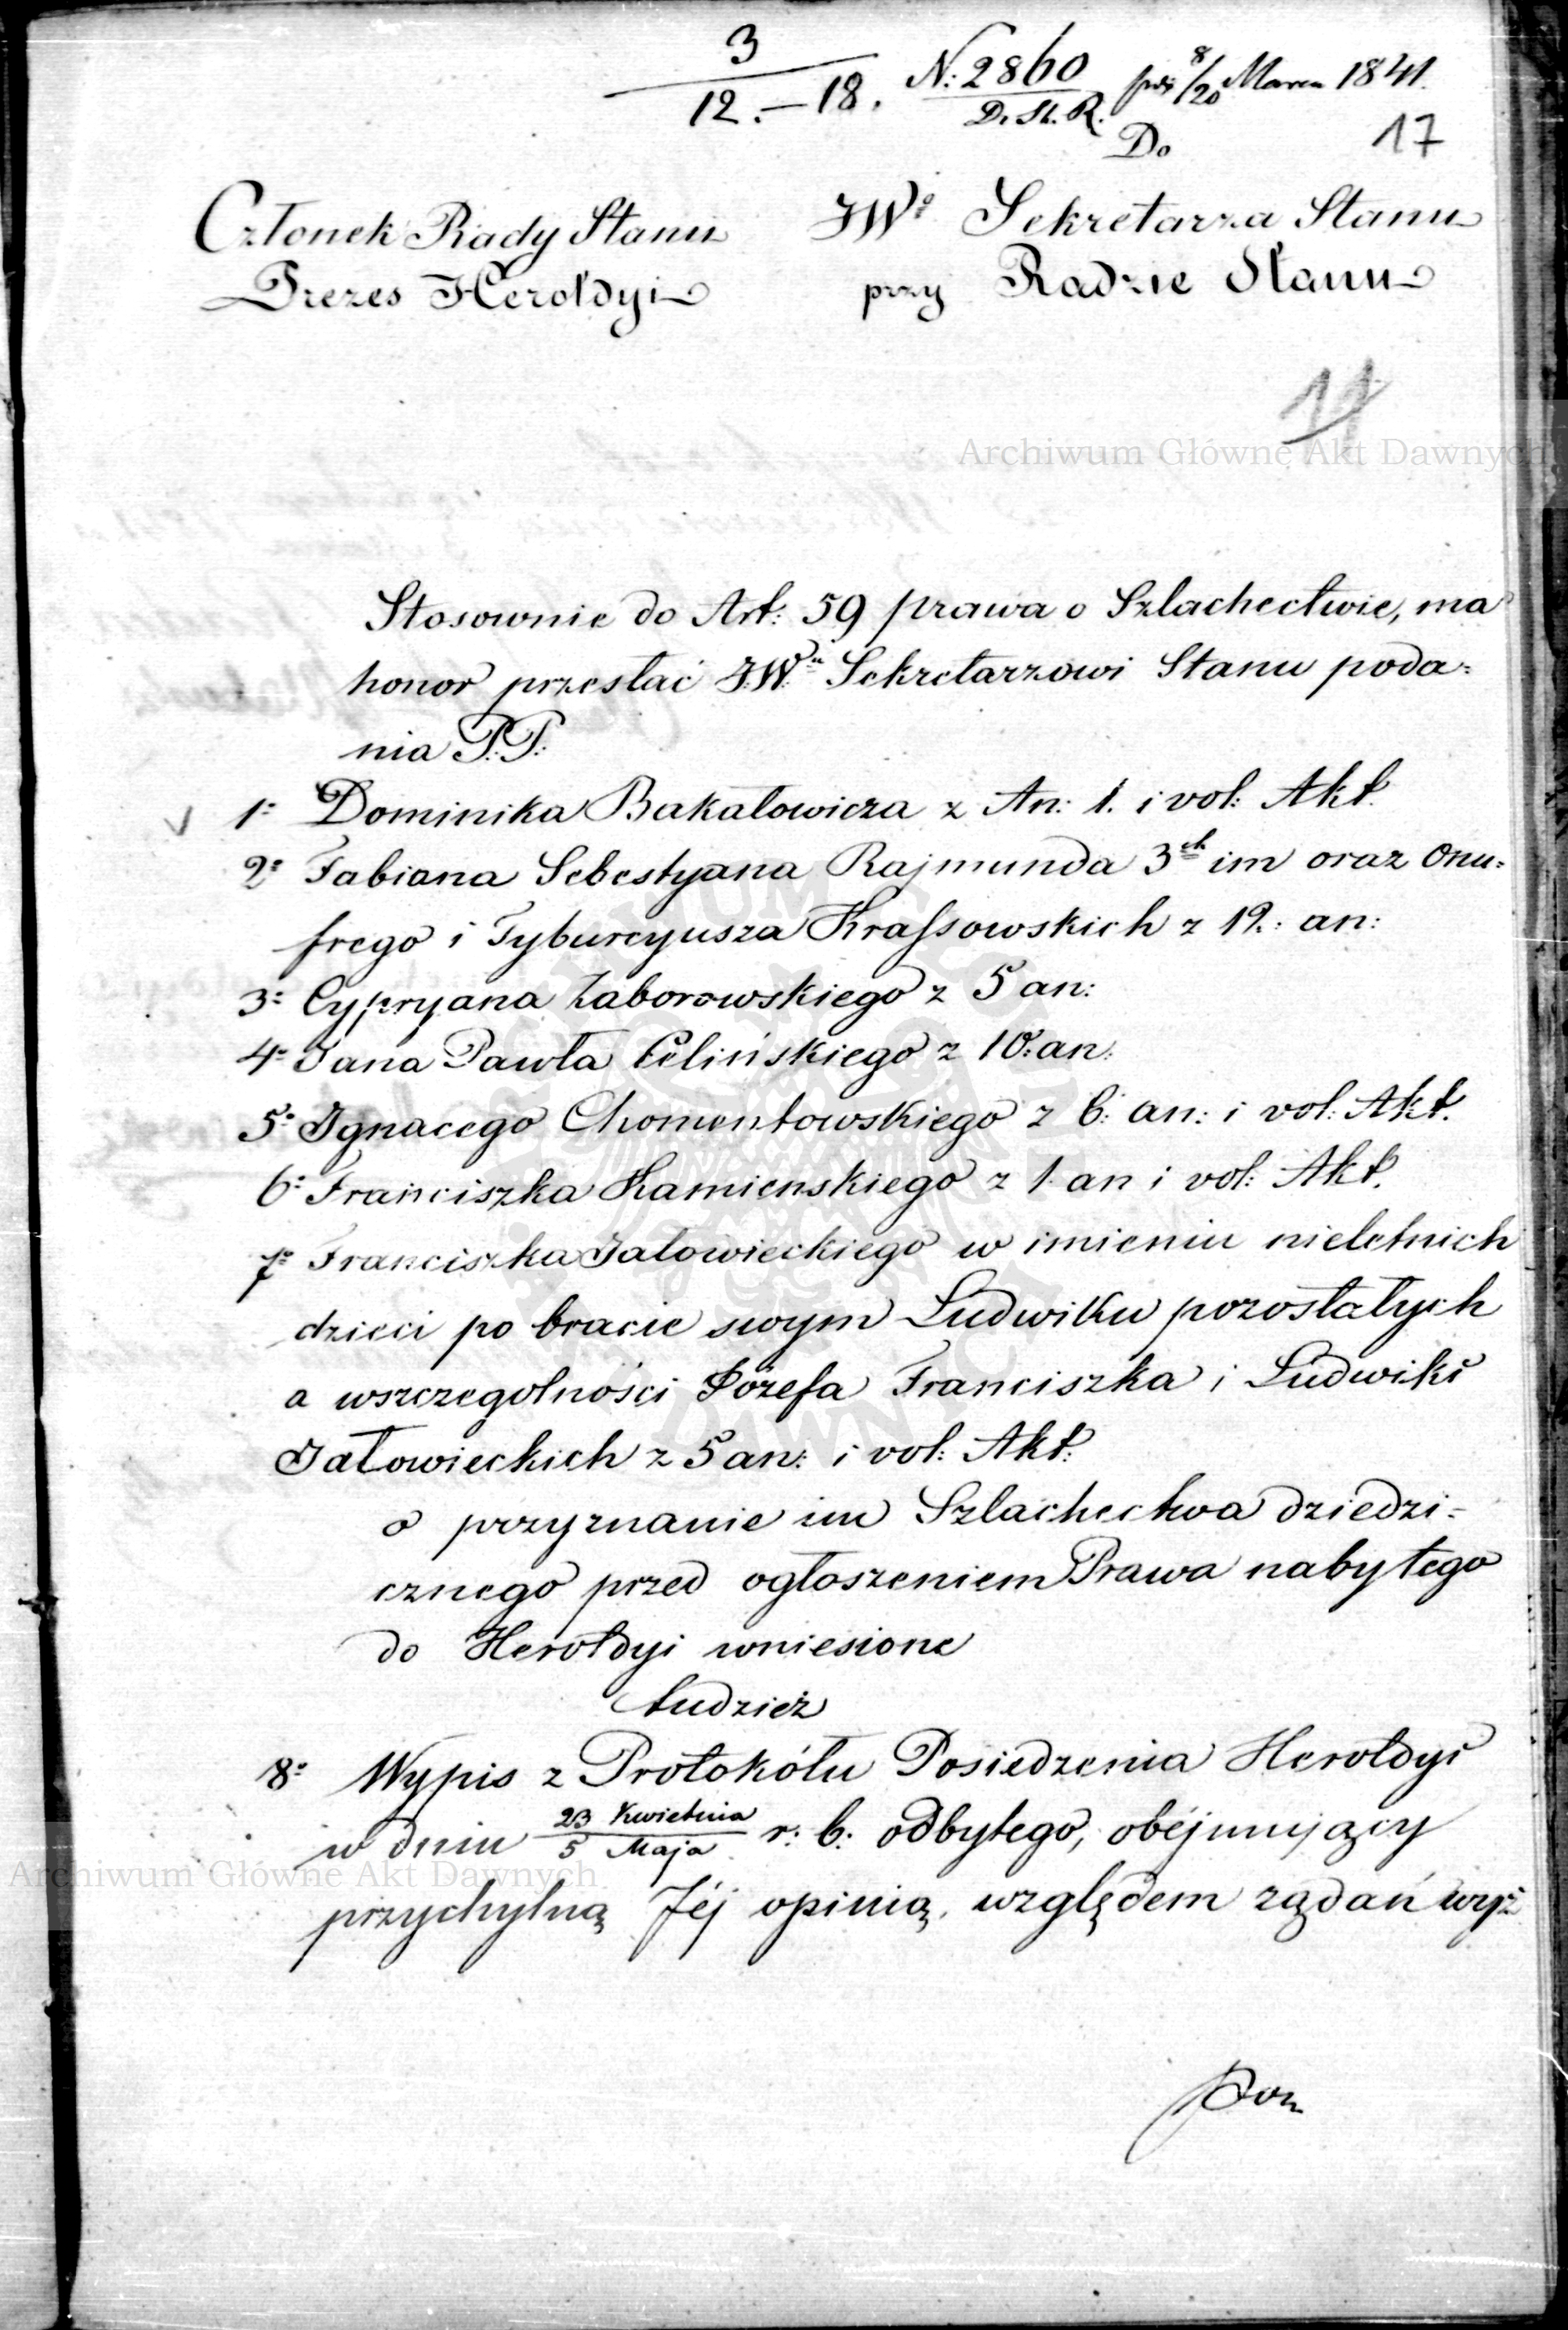 3
12. — 18. N: 2860 8/20 Marca 1841.
D. St. R.
Do 17
Członek Rady Stanu JWo Sekretarza Stanu
Prezes Herołdyi przy Radzie Stanu
11
Archiwum Główne Akt Dawnych
Stosownie do Art: 59 prawa o Szlachectwie, ma
honor przesłać J.W. Sekretarzowi Stanu poda=
nia P.P.
1o Dominika Bakałowicza z An: 1. i vol: Akt.
2o Fabiana Sebestyana Rajmunda 3ch im oraz Onu=
frego i Tyburcyusza Krassowskich z 12.: an:
3o Cypryana Zaborowskiego z 5 an:
4o Jana Pawła Celińskiego z 10: an:
5o Ignacego Chomentowskiego z 6: an: i vol: Akt.
6o Franciszka Kamienskiego z 1 an i vol: Akt.
7o Franciszka Jałowieckiego w imieniu nieletnich
dzieci po bracie swym Ludwiku pozostałych
a wszczególności Józefa Franciszka i Ludwiki
Jałowieckich z 5 an: i vol: Akt:
o przyznanie im Szlachectwa dziedzi=
cznego przed ogłoszeniem Prawa nabytego
do Herołdyi wniesione
tudzież
8o Wypis z Protokółu Posiedzenia Herołdyi
w dniu 23 Kwietnia / 5 Maja r: b: odbytego, obéjmujący
Archiwum Główne Akt Dawnych
przychylną Jéj opinią, względem żądań wyż